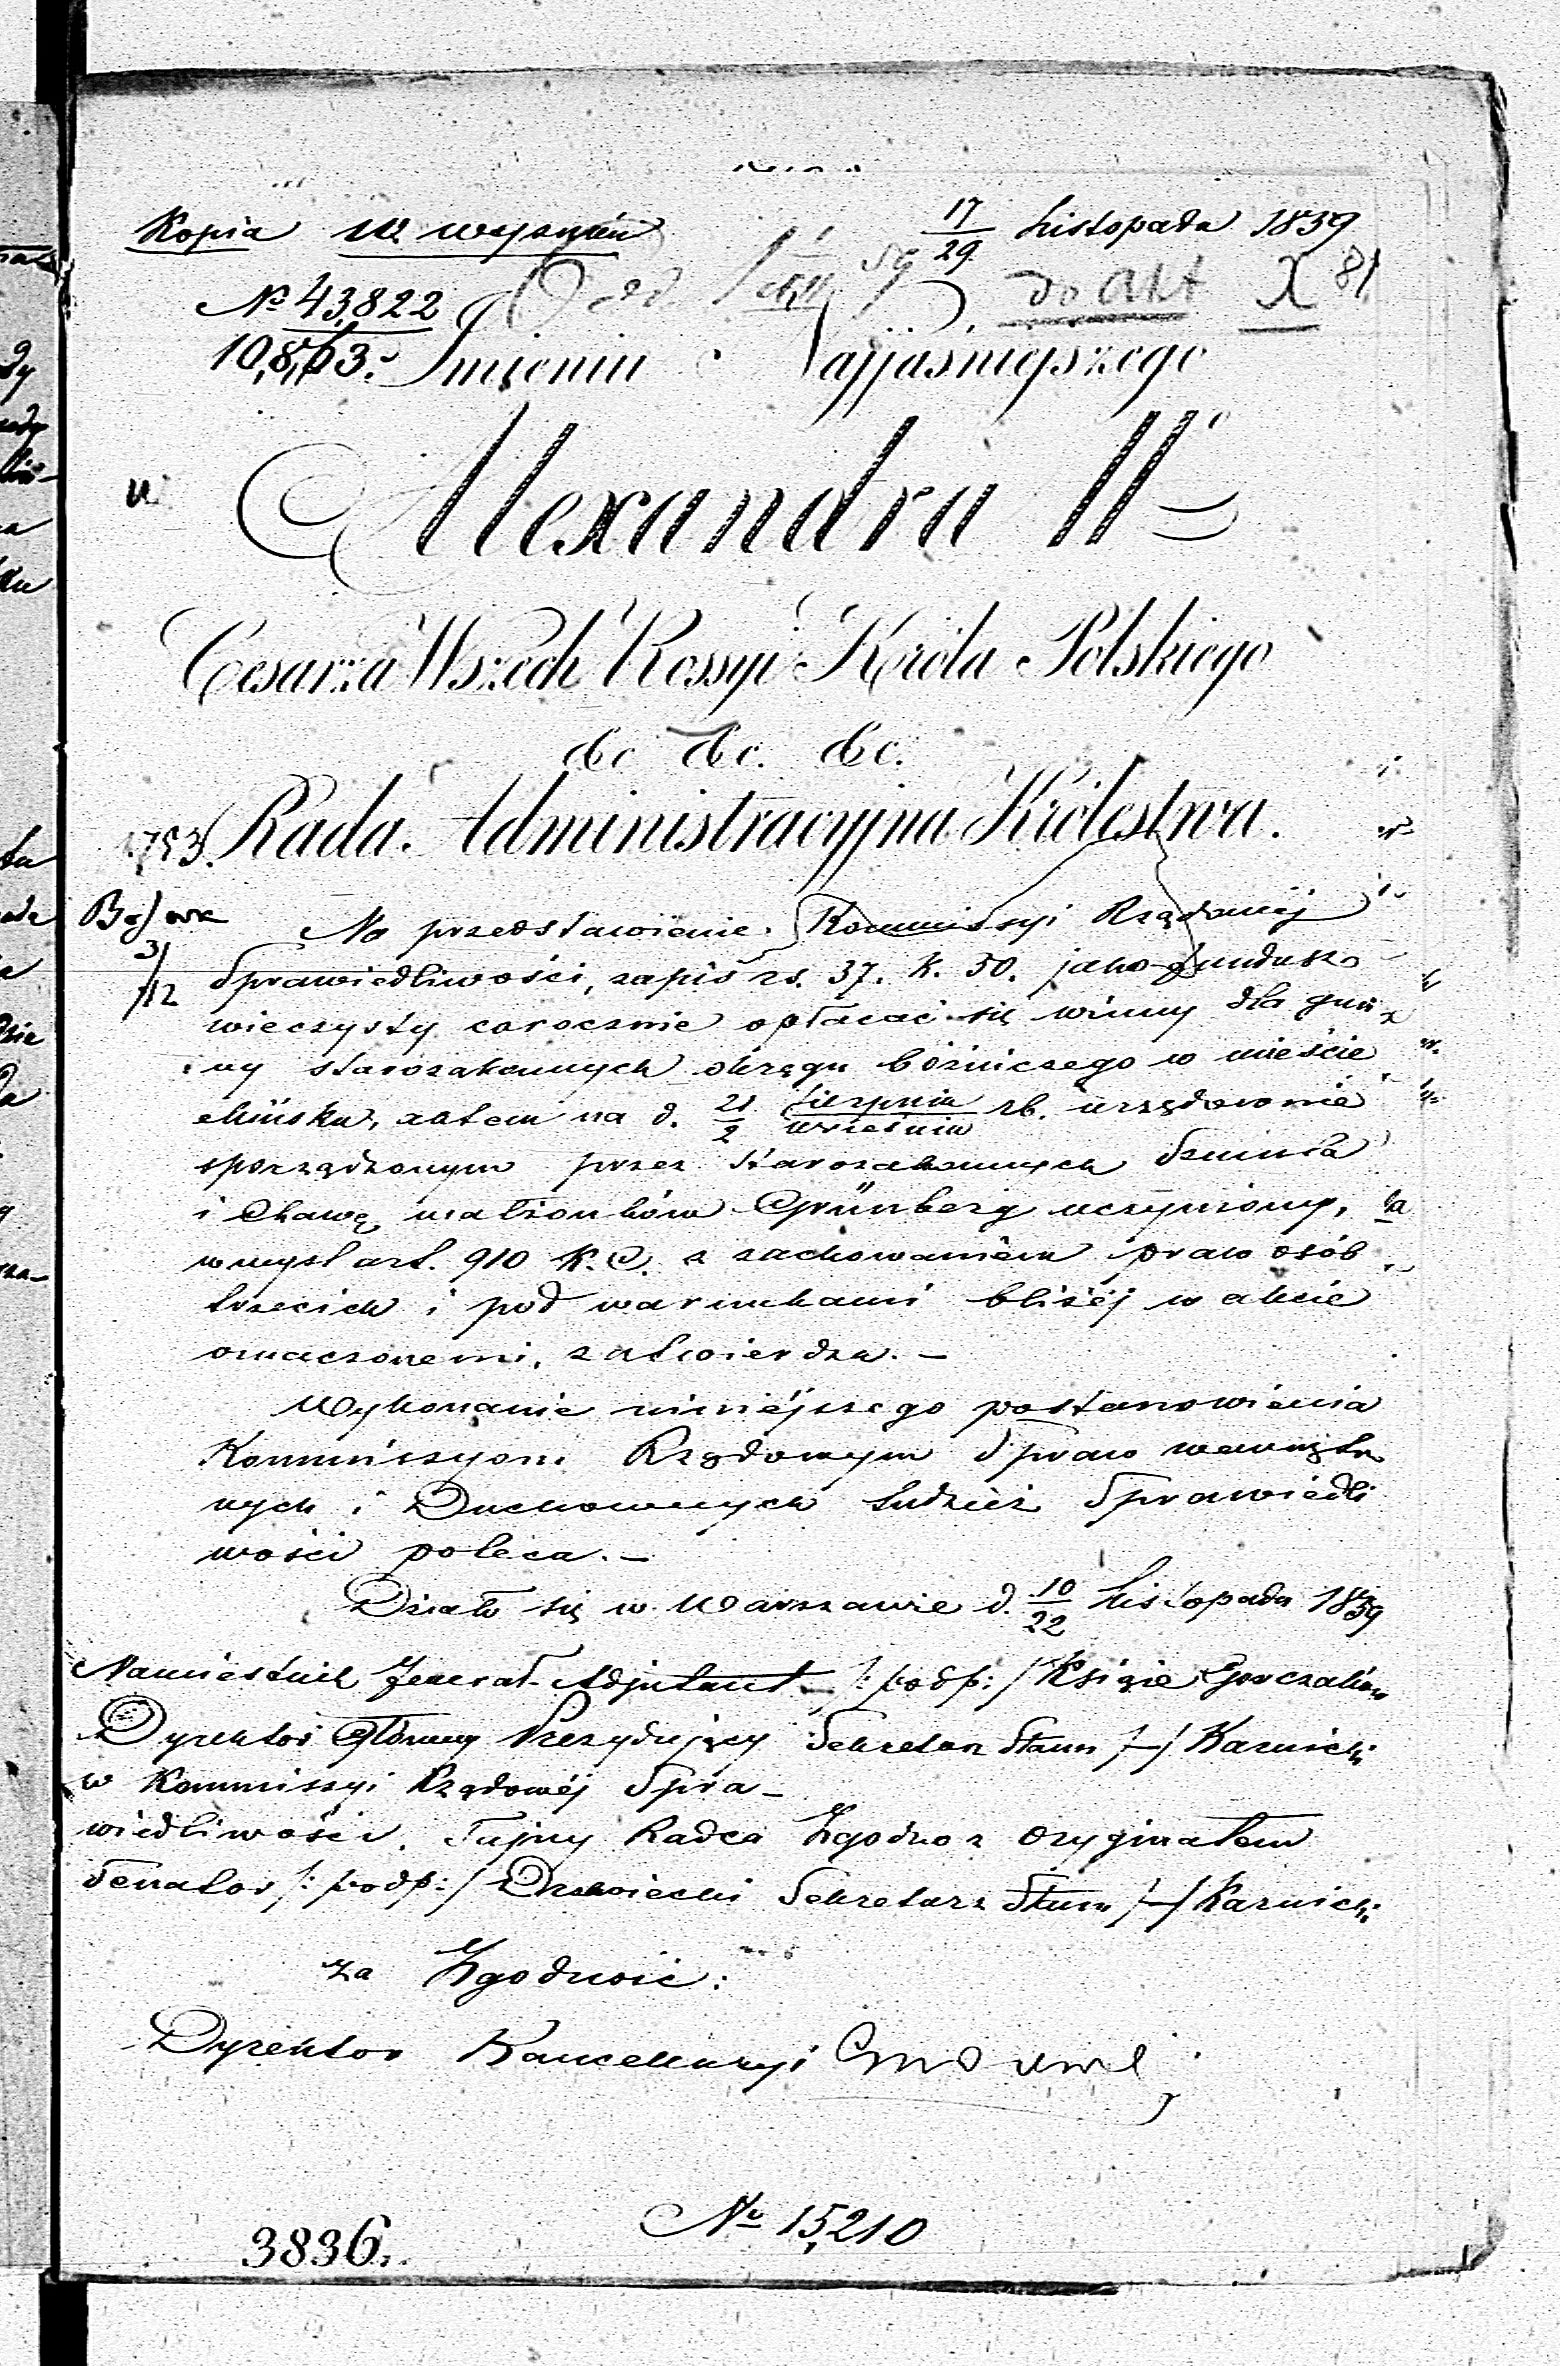 Kopia W wysłaniu 17/29 Listopada 1859
№ 43,822 do akt X 81
10,863. Imieniu Najjaśniejszego
Alexandra IIgo
Cesarza Wszech Rossyi Króla Polskiego
&c &c. &c.
Rada Administracyjna Królestwa.
3/12
Na przedstawienie Kommissyi Rządowéj
Sprawiedliwości, zapis rs. 37. k. 50. jako fundusz
wieczysty corocznie opłacać się winny dla gmi-
ny starozakonnych okręgu bóżniczego w mieście
Mińsku, aktem na d. 21/2 Sierpnia/Września rb. urzędownie
sporządzonym przez starozakonnych Szmula
i Chawę małżonków Grünberg uczyniony,
w myśl art. 910 K.C. z zachowaniem praw osób
trzecich i pod warunkami bliżéj w akcie
oznaczonemi, zatwierdza. —
Wykonanie niniejszego postanowienia
Kommissyom Rządowym Spraw wewnętrz
nych i Duchownych tudzież Sprawiedli
wości poleca. —
Działo się w Warszawie d. 10/22 Listopada 1859
Namiestnik Jenerał-Adjutant /: podp: / Książe Gorczakow
Dyrektor Główny Prezydujący Sekretarz Stanu /—/ Karnicki
w Kommissyi Rządowéj Spra-
wiedliwości, Tajny Radca Zgodno z oryginałem
Senator /: podp: / Drzewiecki Sekretarz Stanu /—/ Karnicki
za Zgodność:
Dyrektor Kancellaryi
№ 15,210
3836.